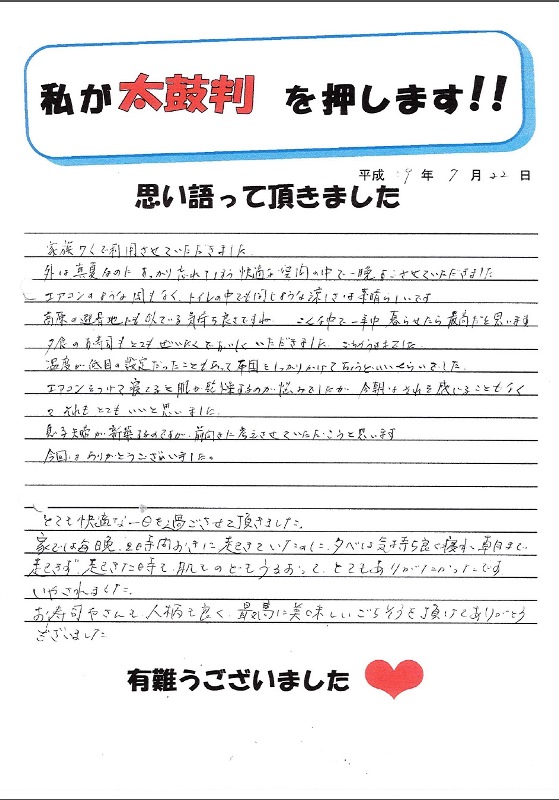 私が太鼓判を押します!!
平成 19 年 7 月 22 日
思い語って頂きました
家族7人で利用させていただきました
外は真夏なのにすっかり忘れてしまう快適な空間の中で一晩すごさせていただきました
エアコンのような風もなく、トイレの中でも同じような涼しさは素晴らしいです
高原の避暑地にも似ている気持ち良さですね こんな中で一年中暮らせたら最高だと思います
夕食のお寿司もとてもぜいたくでおいしくいただきました。ごちそうさまでした。
温度が低目の設定だったこともあって布団をしっかりかけてちょうどいいくらいでした。
エアコンをつけて寝てると肌が乾燥するのが悩みでしたが、今朝はそれを感じることもなく
て それもとてもいいと思いました。
息子夫婦が新築するのですが、前向きに考えさせていただこうと思います
今回は ありがとうございました。
とても快適な一日を過ごさせて頂きました。
家では毎晩、2時間おきに起きていたのに、夕べは気持ち良く寝れ、朝まで
起きず、起きた時も、肌ものどもうるおって、とてもありがたかったです
いやされました。
お寿司やさんも、人柄も良く、最高に美味しいごちそうを頂けてありがとう
ございました
有難うございました